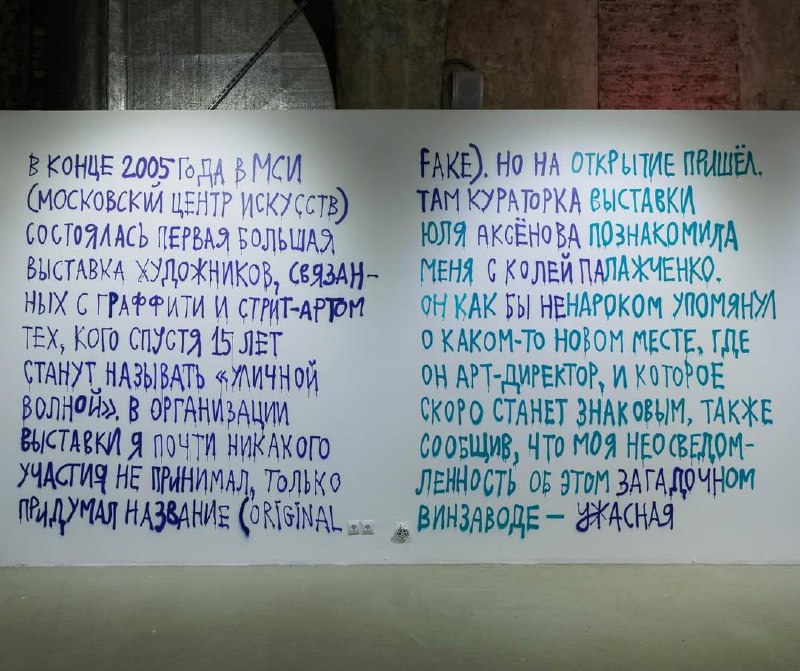 В КОНЦЕ 2005 ГОДА В МСИ
(МОСКОВСКИЙ ЦЕНТР ИСКУССТВ)
СОСТОЯЛАСЬ ПЕРВАЯ БОЛЬШАЯ
ВЫСТАВКА ХУДОЖНИКОВ, СВЯЗАН-
НЫХ С ГРАФФИТИ И СТРИТ-АРТОМ
ТЕХ, КОГО СПУСТЯ 15 ЛЕТ
СТАНУТ НАЗЫВАТЬ «УЛИЧНОЙ
ВОЛНОЙ». В ОРГАНИЗАЦИИ
ВЫСТАВКИ Я ПОЧТИ НИКАКОГО
УЧАСТИЯ НЕ ПРИНИМАЛ, ТОЛЬКО
ПРИДУМАЛ НАЗВАНИЕ (ORIGINAL
FAKE). НО НА ОТКРЫТИЕ ПРИШЁЛ.
ТАМ КУРАТОРКА ВЫСТАВКИ
ЮЛЯ АКСЁНОВА ПОЗНАКОМИЛА
МЕНЯ С КОЛЕЙ ПАЛАЖЧЕНКО.
ОН КАК БЫ НЕНАРОКОМ УПОМЯНУЛ
О КАКОМ-ТО НОВОМ МЕСТЕ, ГДЕ
ОН АРТ-ДИРЕКТОР, И КОТОРОЕ
СКОРО СТАНЕТ ЗНАКОВЫМ, ТАКЖЕ
СООБЩИВ, ЧТО МОЯ НЕОСВЕДОМ-
ЛЕННОСТЬ ОБ ЭТОМ ЗАГАДОЧНОМ
ВИНЗАВОДЕ — УЖАСНАЯ